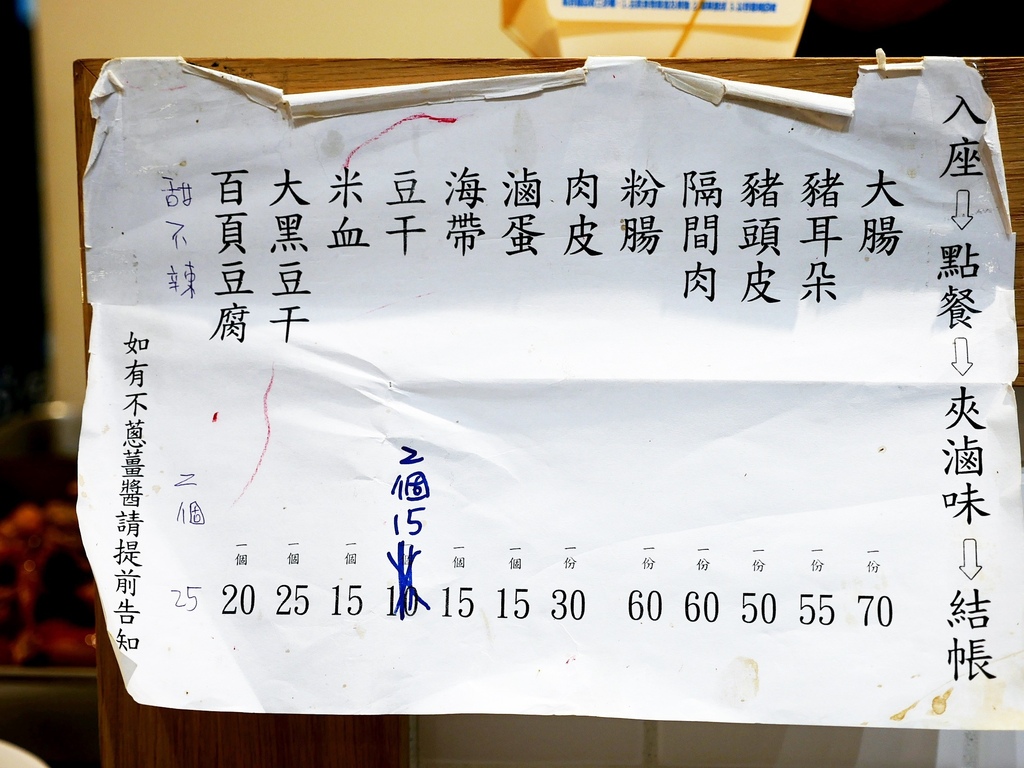 入座⇩點餐⇩夾滷味⇩結帳
大腸 一份 70
豬耳朵 一份 55
豬頭皮 一份 50
隔間肉 一份 60
粉腸 一份 60
肉皮 一份 30
滷蛋 一個 15
海帶 一個 15
豆干 2個15 10
米血 一個 15
大黑豆干 一個 25
百頁豆腐 一個 20
甜不辣 2個 25
如有不蔥薑醬請提前告知